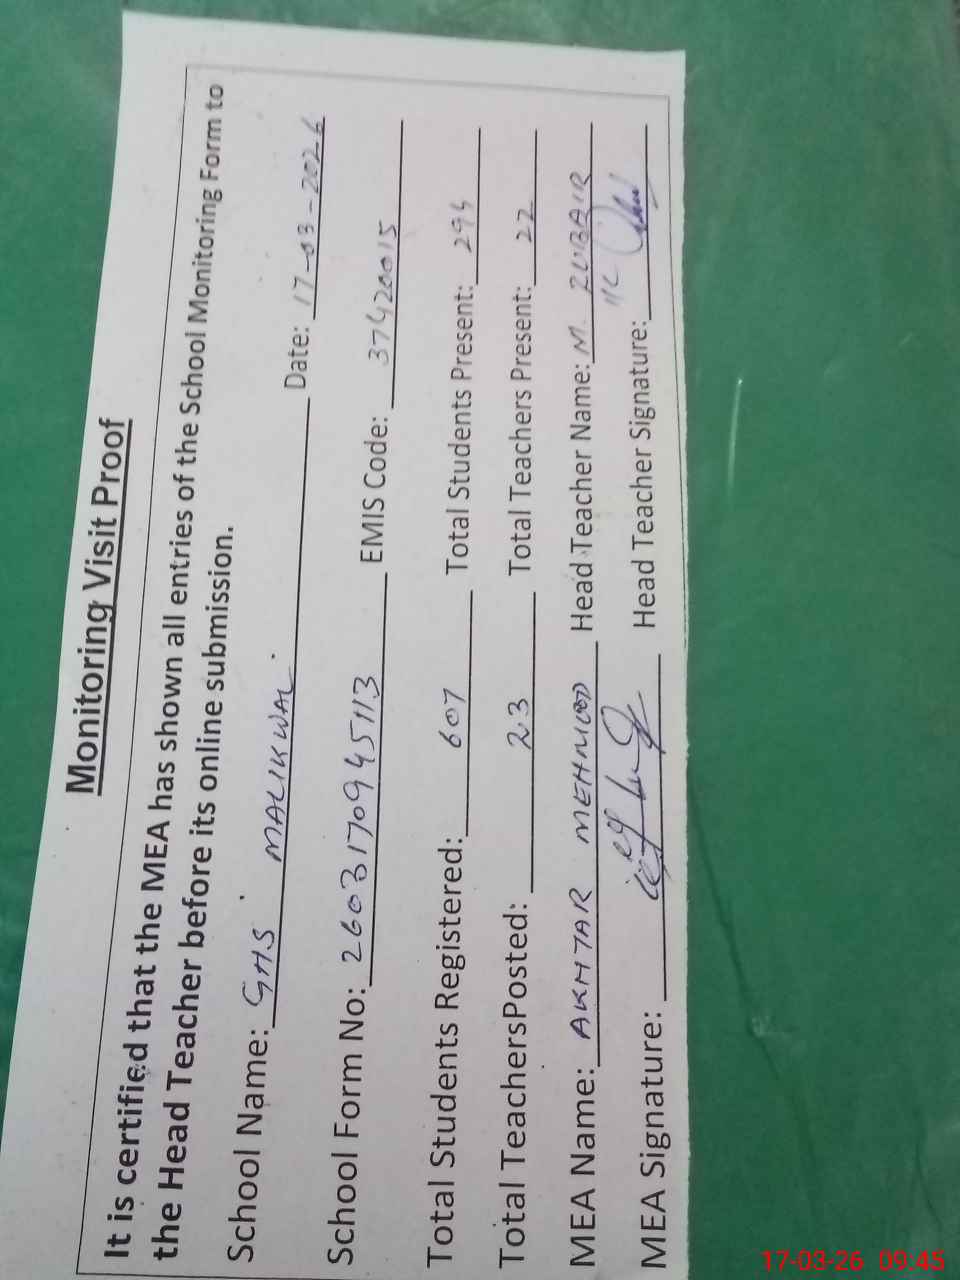 Monitoring Visit Proof
It is certified that the MEA has shown all entries of the School Monitoring Form to
the Head Teacher before its online submission.
School Name: GHS MALIKWAL. Date: 17-03-2026
School Form No: 2603170945113 EMIS Code: 37420015
Total Students Registered: 607 Total Students Present: 294
Total TeachersPosted: 23 Total Teachers Present: 22
MEA Name: AKHTAR MEHMOOD Head Teacher Name: M. ZUBAIR
MEA Signature: Head Teacher Signature:
17-03-26 09:45